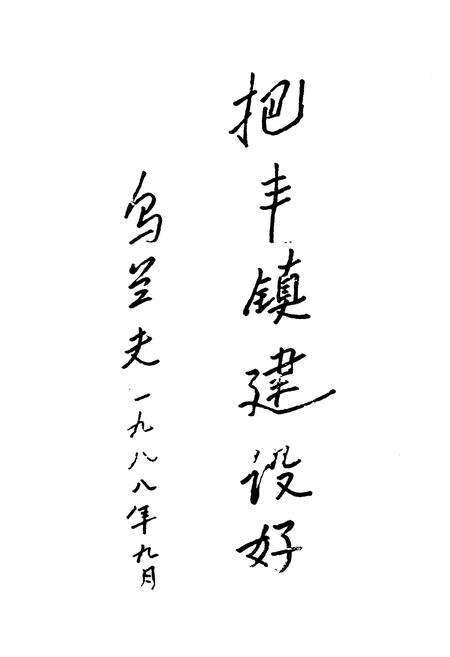 把丰镇建设好
乌兰夫 一九八八年九月